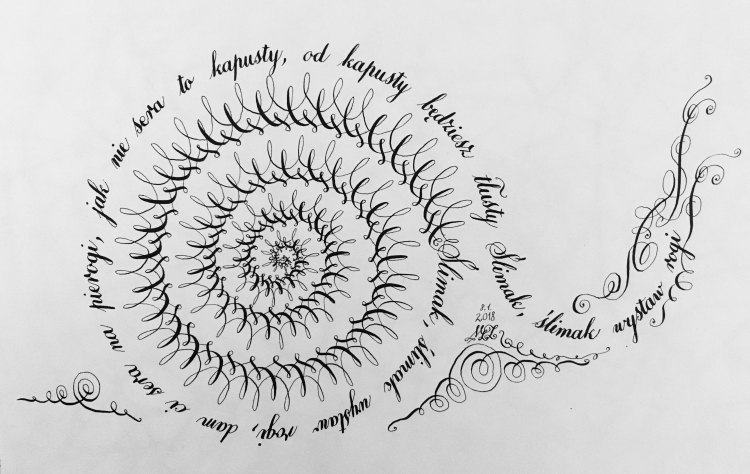 Ślimak, ślimak wystaw rogi, dam ci sera na pierogi, jak nie sera to kapusty, od kapusty będziesz tłusty Ślimak, ślimak wystaw rogi
8.1.
2018